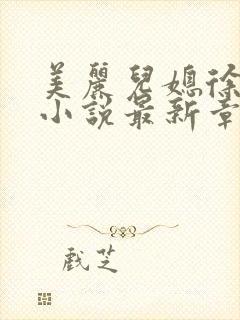 美麗兒媳徐
小說最新章
戲芝